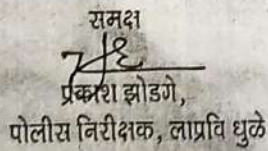 समक्ष
प्रकाश झोडगे,
पोलीस निरीक्षक, लाप्रवि धुळे